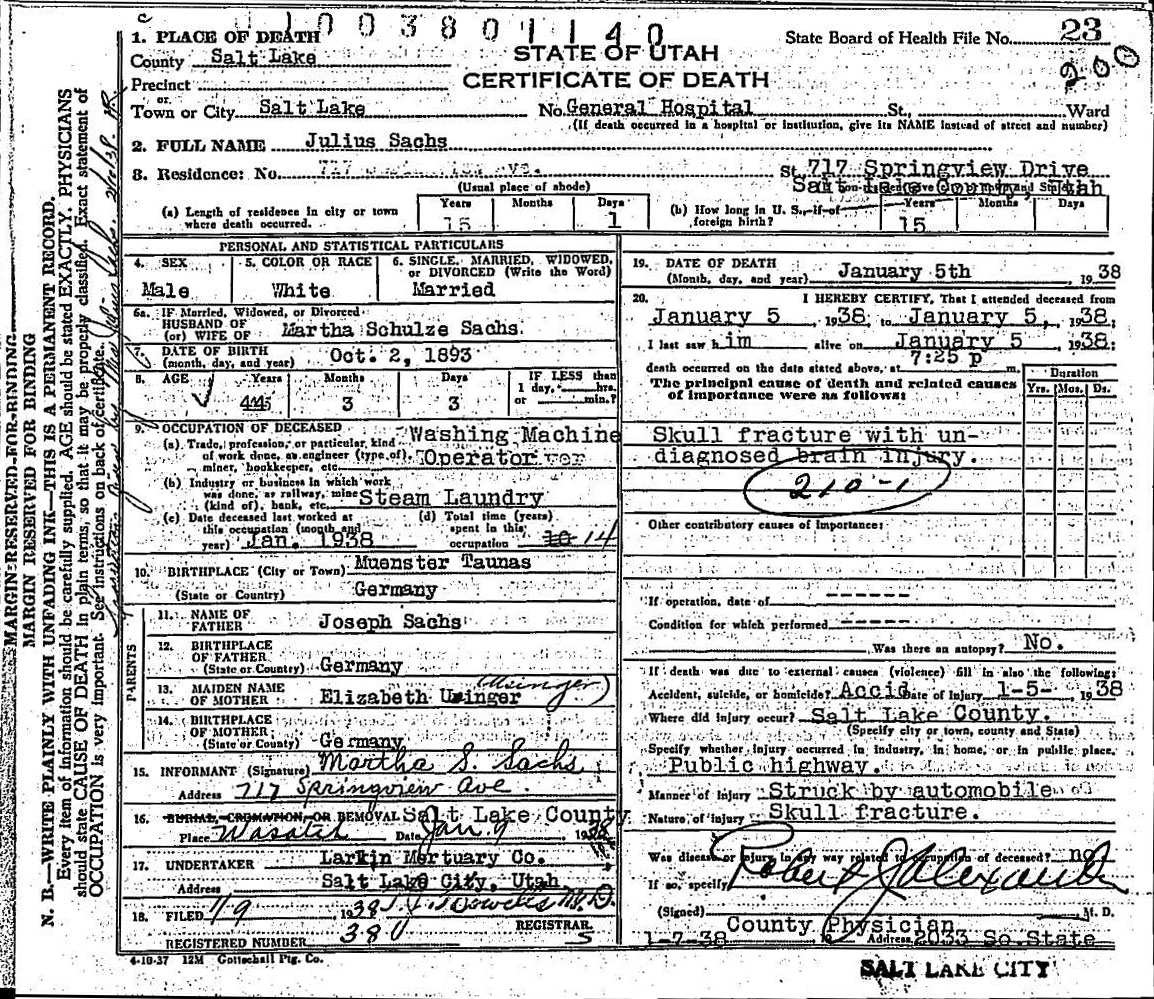 1003801140
1. PLACE OF DEATH
County Salt Lake
Precinct
or
Town or City Salt Lake
STATE OF UTAH
CERTIFICATE OF DEATH
State Board of Health File No. 23
200
No. General Hospital St., Ward
(If death occurred in a hospital or institution, give its NAME instead of street and number)
2. FULL NAME Julius Sachs
3. Residence: No. 717 St. 717 Springview Drive
Salt Lake County, Utah
(Usual place of abode)
(a) Length of residence in city or town where death occurred. Years 15 Months Days 1
(b) How long in U. S., if of foreign birth? Years 15 Months Days
MARGIN RESERVED FOR BINDING
MARGIN RESERVED FOR BINDING
N. B.—WRITE PLAINLY WITH UNFADING INK—THIS IS A PERMANENT RECORD.
Every item of information should be carefully supplied. AGE should be stated EXACTLY. PHYSICIANS
should state CAUSE OF DEATH in plain terms, so that it may be properly classified. Exact statement of
OCCUPATION is very important. See instructions on back of certificate.
PERSONAL AND STATISTICAL PARTICULARS
4. SEX Male
5. COLOR OR RACE White
6. SINGLE, MARRIED, WIDOWED, or DIVORCED (Write the Word) Married
6a. IF Married, Widowed, or Divorced
HUSBAND OF
(or) WIFE OF Martha Schulze Sachs
7. DATE OF BIRTH
(month, day, and year) Oct. 2, 1893
8. AGE Years 44 Months 3 Days 3 IF LESS than 1 day, hrs. or min.?
9. OCCUPATION OF DECEASED
(a) Trade, profession, or particular kind of work done, as engineer (type of), miner, bookkeeper, etc. Washing Machine Operator
(b) Industry or business in which work was done, as railway, mine (kind of), bank, etc. Steam Laundry
(c) Date deceased last worked at this occupation (month and year) Jan. 1938
(d) Total time (years) spent in this occupation 10 14
10. BIRTHPLACE (City or Town) Muenster Taunas
(State or Country) Germany
PARENTS
11. NAME OF FATHER Joseph Sachs
12. BIRTHPLACE OF FATHER (State or Country) Germany
13. MAIDEN NAME OF MOTHER Elizabeth Usinger (Usinger)
14. BIRTHPLACE OF MOTHER (State or Country) Germany
15. INFORMANT (Signature) Martha S. Sachs
Address 717 Springview Ave.
16. BURIAL, CREMATION, OR REMOVAL Salt Lake County
Place Wasatch Date Jan 9 1938
17. UNDERTAKER Larkin Mortuary Co.
Address Salt Lake City, Utah
18. FILED 1/9 1938 M.D.
REGISTRAR
REGISTERED NUMBER 380
S
19. DATE OF DEATH
(Month, day, and year) January 5th 1938
20. I HEREBY CERTIFY, That I attended deceased from
January 5 1938 to January 5, 1938;
I last saw him alive on January 5 1938;
death occurred on the date stated above, at 7:25 p m.
The principal cause of death and related causes of importance were as follows:
Duration
Yrs. Mos. Ds.
Skull fracture with un-
diagnosed brain injury.
210-1
Other contributory causes of importance:
If operation, date of ------
Condition for which performed -----
Was there an autopsy? No.
If death was due to external causes (violence) fill in also the following:
Accident, suicide, or homicide? Accid Date of injury 1-5- 1938
Where did injury occur? Salt Lake County.
(Specify city or town, county and State)
Specify whether injury occurred in industry, in home, or in public place.
Public highway.
Manner of Injury Struck by automobile
Nature of injury Skull fracture.
Was disease or injury in any way related to occupation of deceased? no
If so, specify
(Signed) Robert J Alexander M. D.
County Physician
1-7-38 Address 2033 So. State
SALT LAKE CITY
4-10-37 12M Gottschall Ptg. Co.